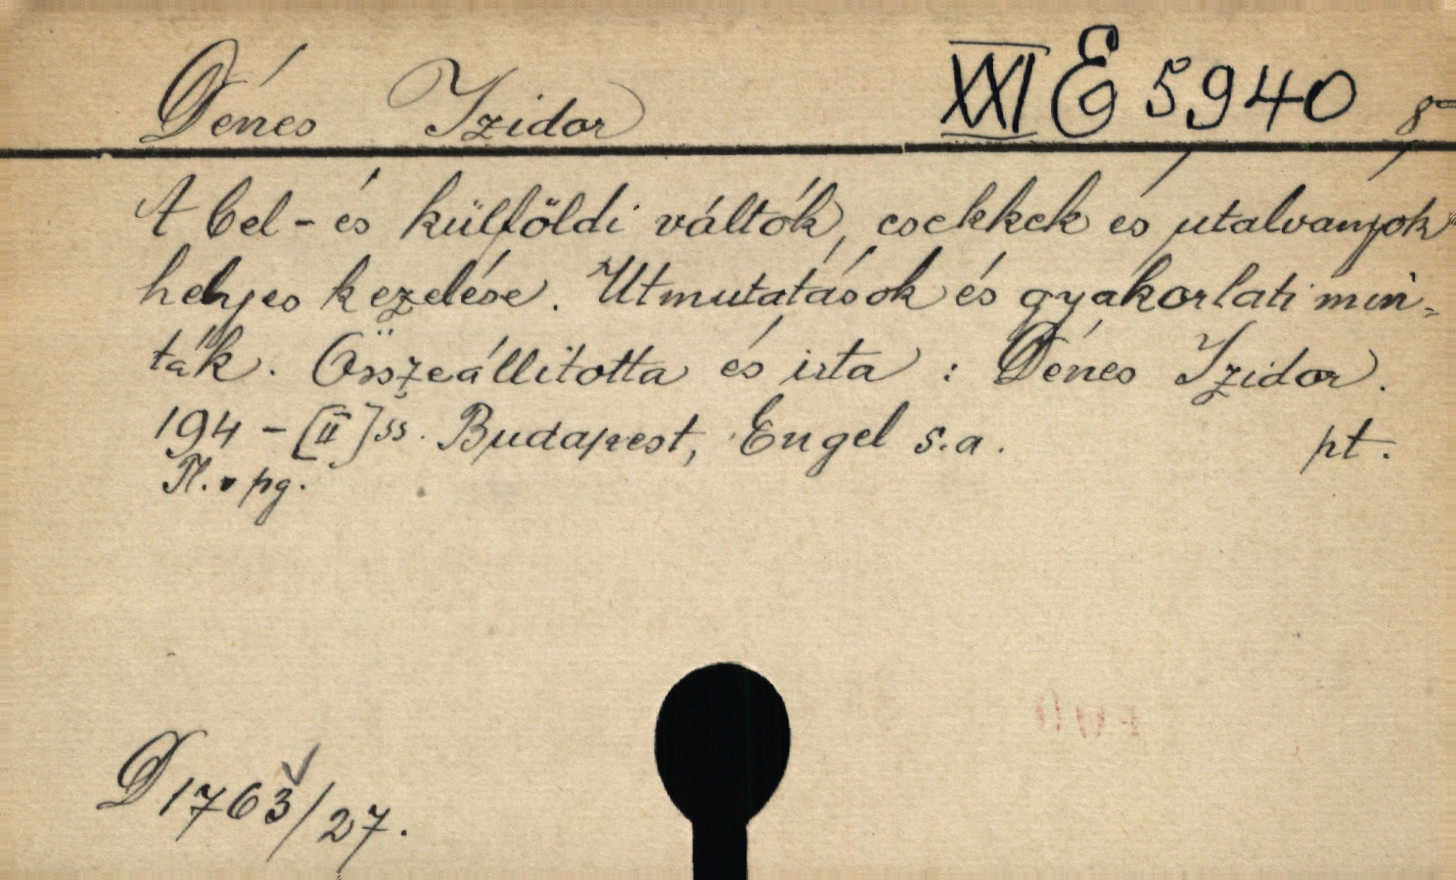 Dénes Izidor XXI E 5940 8°
A bel- és külföldi váltók, csekkek és utalványok
helyes kezelése. Utmutatások és gyakorlati min-
ták. Összeállította és irta : Dénes Izidor.
194 - [II] ss. Budapest, Engel s.a. pt.
Pl. v pg.
D 1763/27.